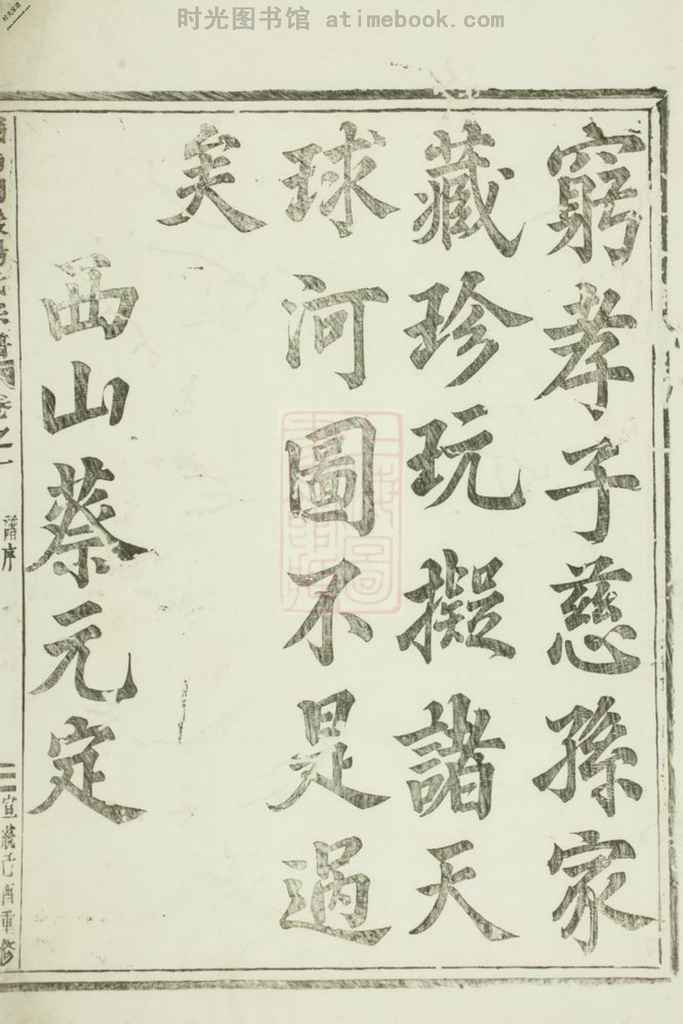 时光图书馆 atimebook.com
窮孝子慈孫家
藏珍玩擬諸天
球河圖不是過
矣
西山蔡元定
譜序
宣統己酉重修